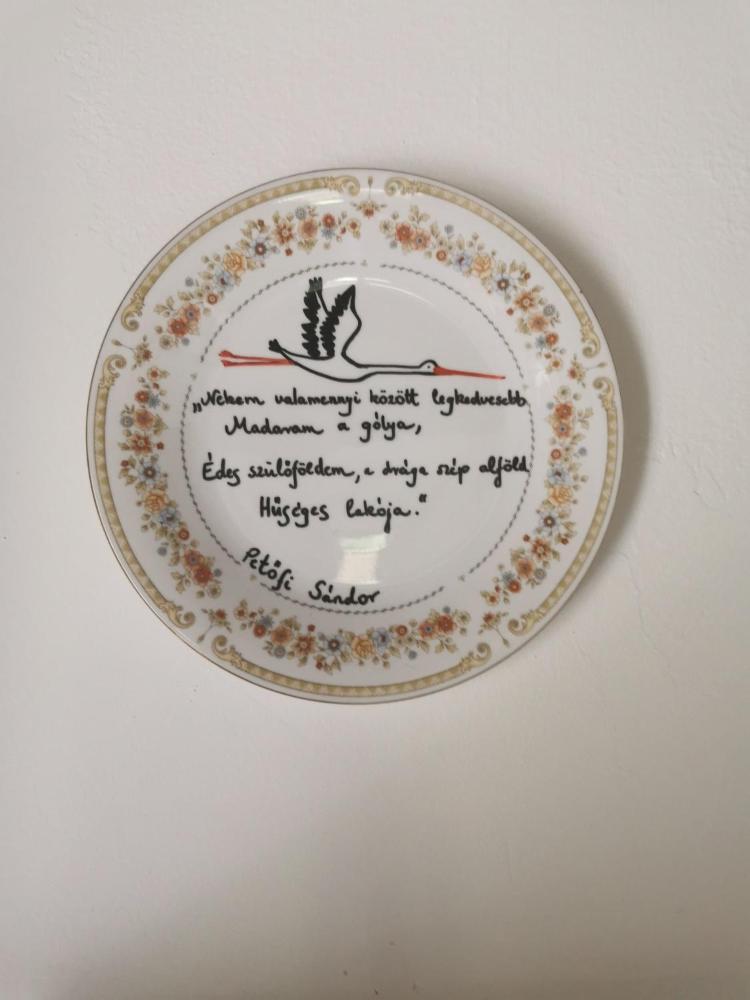 „Nékem valamennyi között legkedvesebb
Madaram a gólya,
Édes szülőföldem, a drága szép alföld
Hűséges lakója.“
Petőfi Sándor